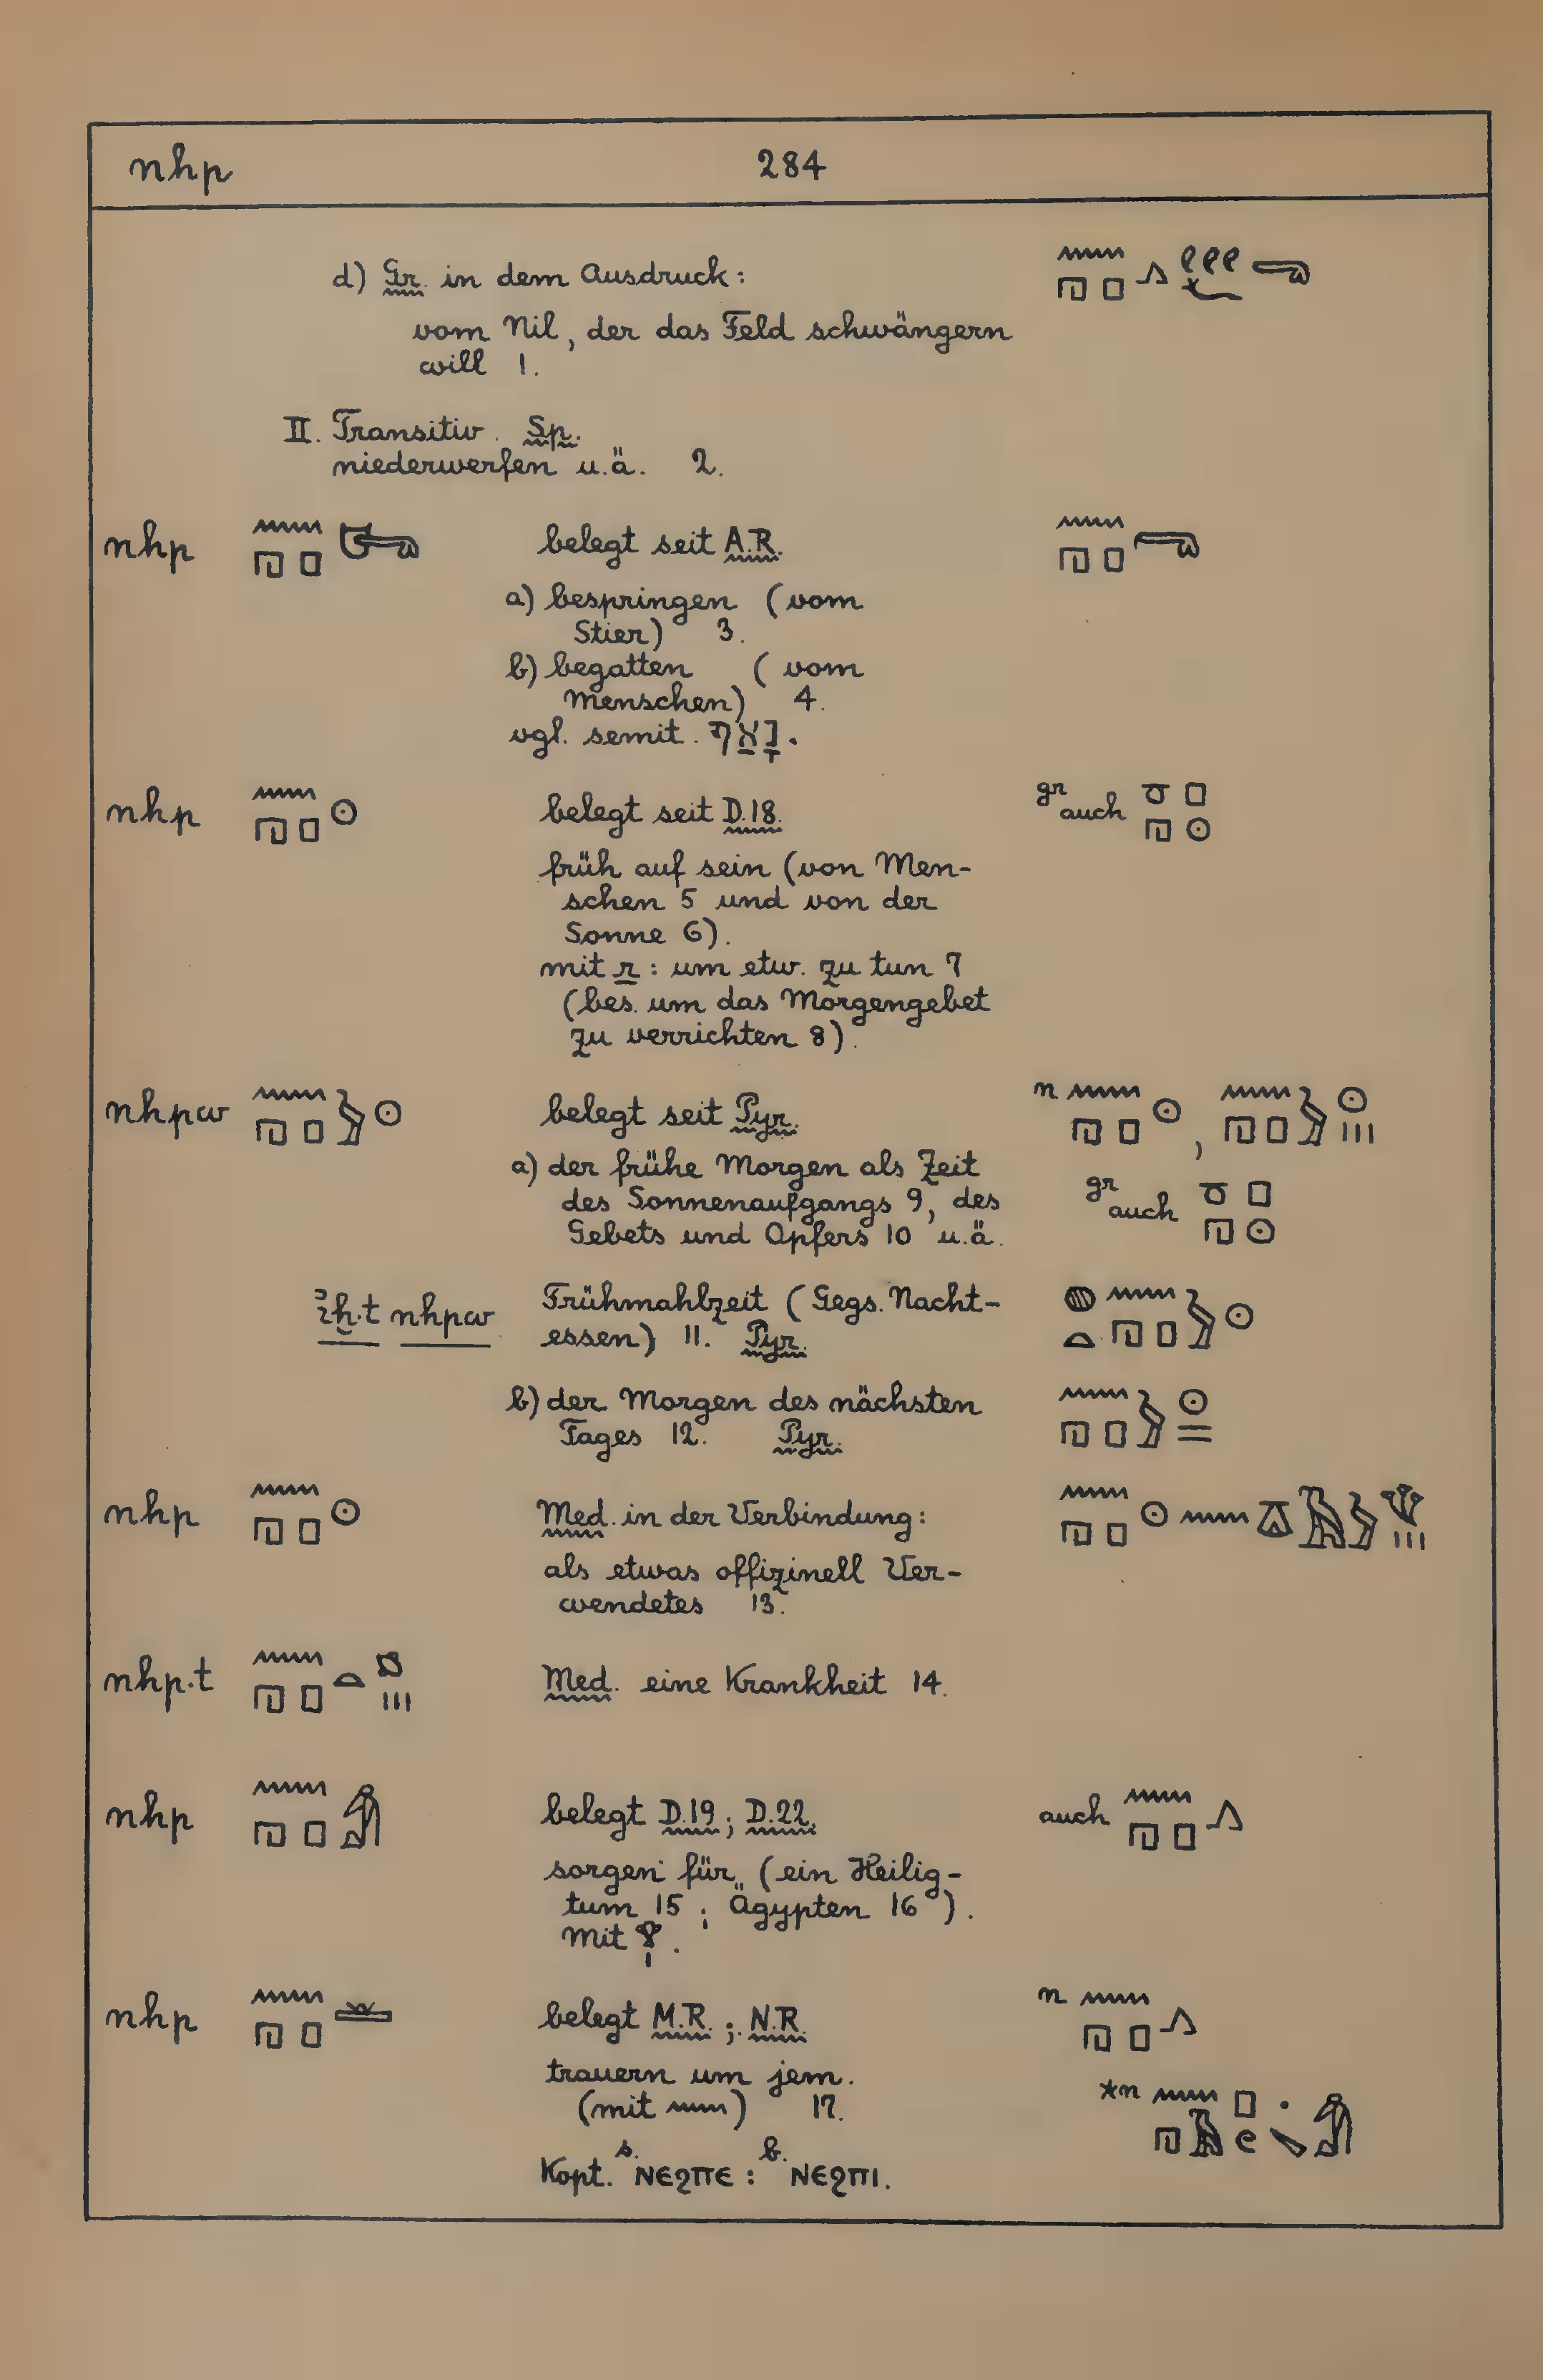 nhp 284
d) Gr. in dem Ausdruck: 𓈖𓉔𓊪𓂻
vom Nil, der das Feld schwängern
will 1.
II. Transitiv. Sp.
niederwerfen u.ä. 2.
nhp 𓈖𓉔𓊪 belegt seit A.R. 𓈖𓉔𓊪𓂸
a) bespringen (vom
Stier) 3.
b) begatten (vom
Menschen) 4.
vgl. semit. נָאַף.
nhp 𓈖𓉔𓊪𓇳 belegt seit D.18. gr auch 𓏌𓊪𓉔𓇳
früh auf sein (von Men-
schen 5 und von der
Sonne 6).
mit r: um etw. zu tun 7
(bes. um das Morgengebet
zu verrichten 8).
nhpw 𓈖𓉔𓊪𓅱𓇳 belegt seit Pyr. n 𓈖𓉔𓊪𓇳, 𓈖𓉔𓊪𓅱𓇳𓏥
a) der frühe Morgen als Zeit
des Sonnenaufgangs 9, des gr auch 𓏌𓊪𓉔𓇳
Gebets und Opfers 10 u.ä.
ꜣḫ.t nhpw Frühmahlzeit (Gegs. Nacht- 𓐍𓏏𓈖𓉔𓊪𓅱𓇳
essen) 11. Pyr.
b) der Morgen des nächsten 𓈖𓉔𓊪𓅱𓇳
Tages 12. Pyr.
nhp 𓈖𓉔𓊪𓇳 Med. in der Verbindung: 𓈖𓉔𓊪𓇳𓈖𓎼𓅓𓅱𓆰𓏥
als etwas offizinell Ver-
wendetes 13.
nhp.t 𓈖𓉔𓊪𓏏𓏥 Med. eine Krankheit 14.
nhp 𓈖𓉔𓊪𓀁 belegt D.19; D.22. auch 𓈖𓉔𓊪𓂻
sorgen für (ein Heilig-
tum 15; Ägypten 16).
Mit 𓁷𓏤.
nhp 𓈖𓉔𓊪𓏛 belegt M.R.; N.R. n 𓈖𓉔𓊪𓂻
trauern um jem. *n 𓈖𓉔𓄿𓊪𓏲𓀁
(mit 𓈖) 17.
Kopt. s. ⲛⲉϩⲡⲉ : b. ⲛⲉϩⲡⲓ.